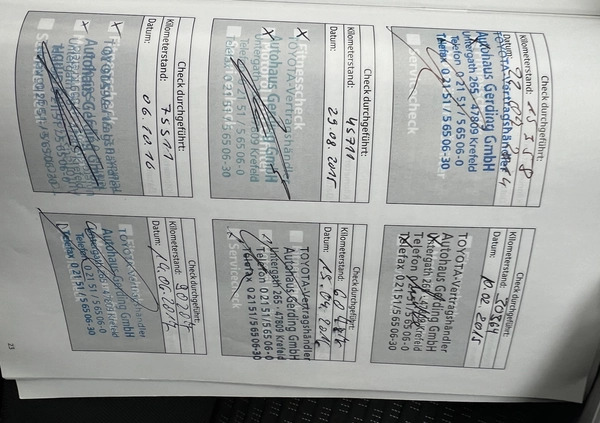 Check durchgeführt:
Kilometerstand: 15358
Datum:
TOYOTA-Vertragshändler
Autohaus Gerding GmbH
Untergath 265 · 47809 Krefeld
Telefon 0 21 51 / 5 65 06-0
Telefax 0 21 51 / 5 65 06-30
Servicecheck
Check durchgeführt:
Kilometerstand: 30864
Datum: 10.02 2015
TOYOTA-Vertragshändler
Autohaus Gerding GmbH
Untergath 265 · 47809 Krefeld
Telefon 0 21 51 / 5 65 06-0
Telefax 0 21 51 / 5 65 06-30
Check durchgeführt:
Kilometerstand: 45710
Datum: 29.08.2015
X Fitnesscheck
TOYOTA-Vertragshändler
Autohaus Gerding GmbH
Untergath 265 · 47809 Krefeld
Telefon 0 21 51 / 5 65 06-0
Telefax 0 21 51 / 5 65 06-30
Check durchgeführt:
Kilometerstand:
Datum: 15.04.2016
TOYOTA-Vertragshändler
Autohaus Gerding GmbH
Untergath 265 · 47809 Krefeld
Telefon 0 21 51 / 5 65 06-0
Telefax 0 21 51 / 5 65 06-30
Servicecheck
Check durchgeführt:
Kilometerstand: 75511
Datum: 06.10.16
X Fitnesscheck
Autohaus Gerding GmbH
Check durchgeführt:
Kilometerstand:
Datum:
TOYOTA-Vertragshändler
Autohaus Gerding GmbH
Untergath 265 · 47809 Krefeld
Telefon 0 21 51 / 5 65 06-0
Telefax 0 21 51 / 5 65 06-30
23